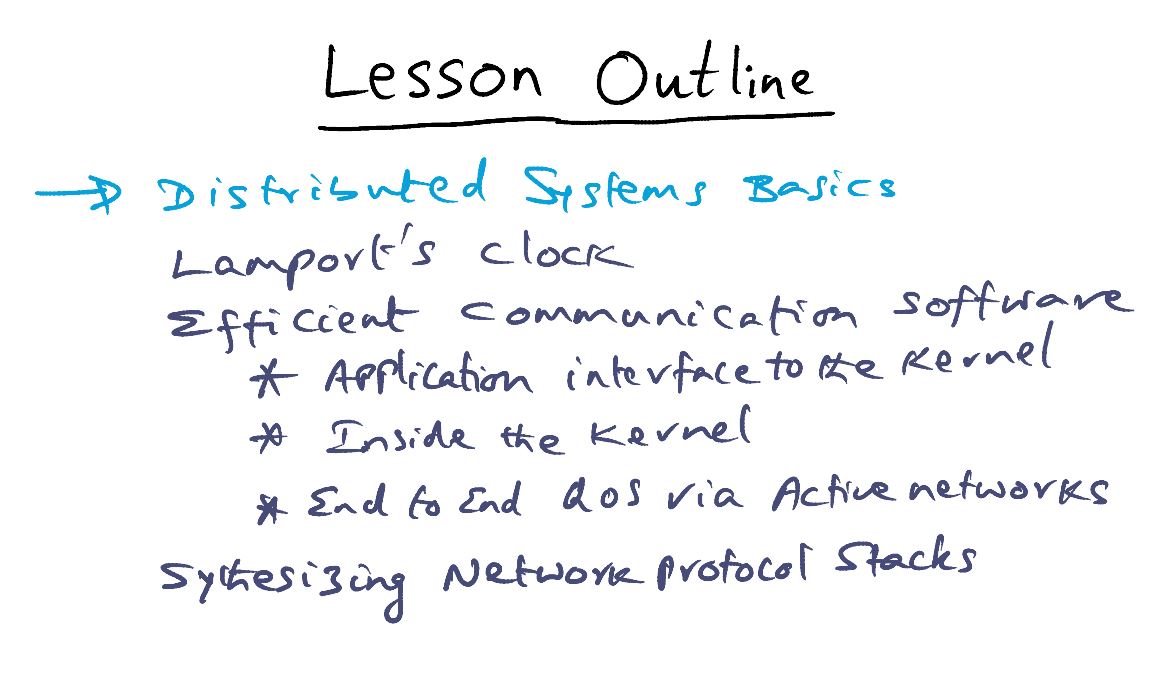 Lesson Outline
→ Distributed Systems Basics
Lamport's clock
Efficient communication software
* Application interface to the kernel
* Inside the kernel
* End to End QoS via Active networks
Sythesizing Network protocol Stacks